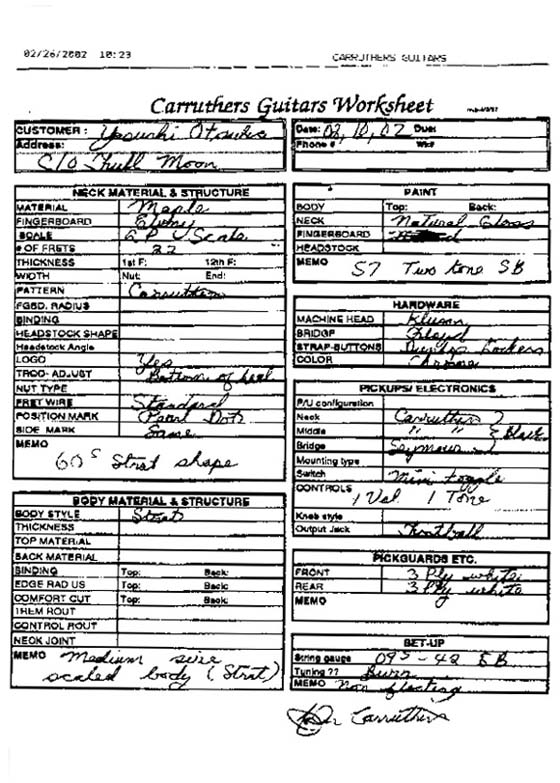 02/26/2002 10:23 CARRUTHERS GUITARS
Carruthers Guitars Worksheet
CUSTOMER: Yasushi Otsuka
Address:
C/O Thull Moon
Date: 02, 10, 02 Due:
Phone # Wk#
NECK MATERIAL & STRUCTURE
MATERIAL Maple
FINGERBOARD Ebony
SCALE Scale
# OF FRETS 22
THICKNESS 1st F: 12th F:
WIDTH Nut: End:
PATTERN Carruthers
FGBD. RADIUS
BINDING
HEADSTOCK SHAPE
Headstock Angle
LOGO Yes
TROD- ADJUST Bottom of heel
NUT TYPE
FRET WIRE Standard
POSITION MARK Pearl Dots
SIDE MARK Same
MEMO
60s Strat shape
BODY MATERIAL & STRUCTURE
BODY STYLE Strat
THICKNESS
TOP MATERIAL
BACK MATERIAL
BINDING Top: Back:
EDGE RADIUS Top: Back:
COMFORT CUT Top: Back:
TREM ROUT
CONTROL ROUT
NECK JOINT
MEMO Medium size
scaled body (Strat)
PAINT
BODY Top: Back:
NECK Natural Gloss
FINGERBOARD
HEADSTOCK
MEMO 57 Two tone SB
HARDWARE
MACHINE HEAD Kluson
BRIDGE Floyd
STRAP-BUTTONS Dunlop Lockers
COLOR Chrome
PICKUPS/ ELECTRONICS
P/U configuration
Neck Carruthers
Middle " " } Black
Bridge Seymour
Mounting type
Switch Mini toggle
CONTROLS 1 Vol 1 Tone
Knob style
Output Jack Football
PICKGUARDS ETC.
FRONT 3 Ply white
REAR 3 Ply white
MEMO
SET-UP
String gauge 095 - 42 EB
Tuning ??
MEMO Non floating
Carruthers